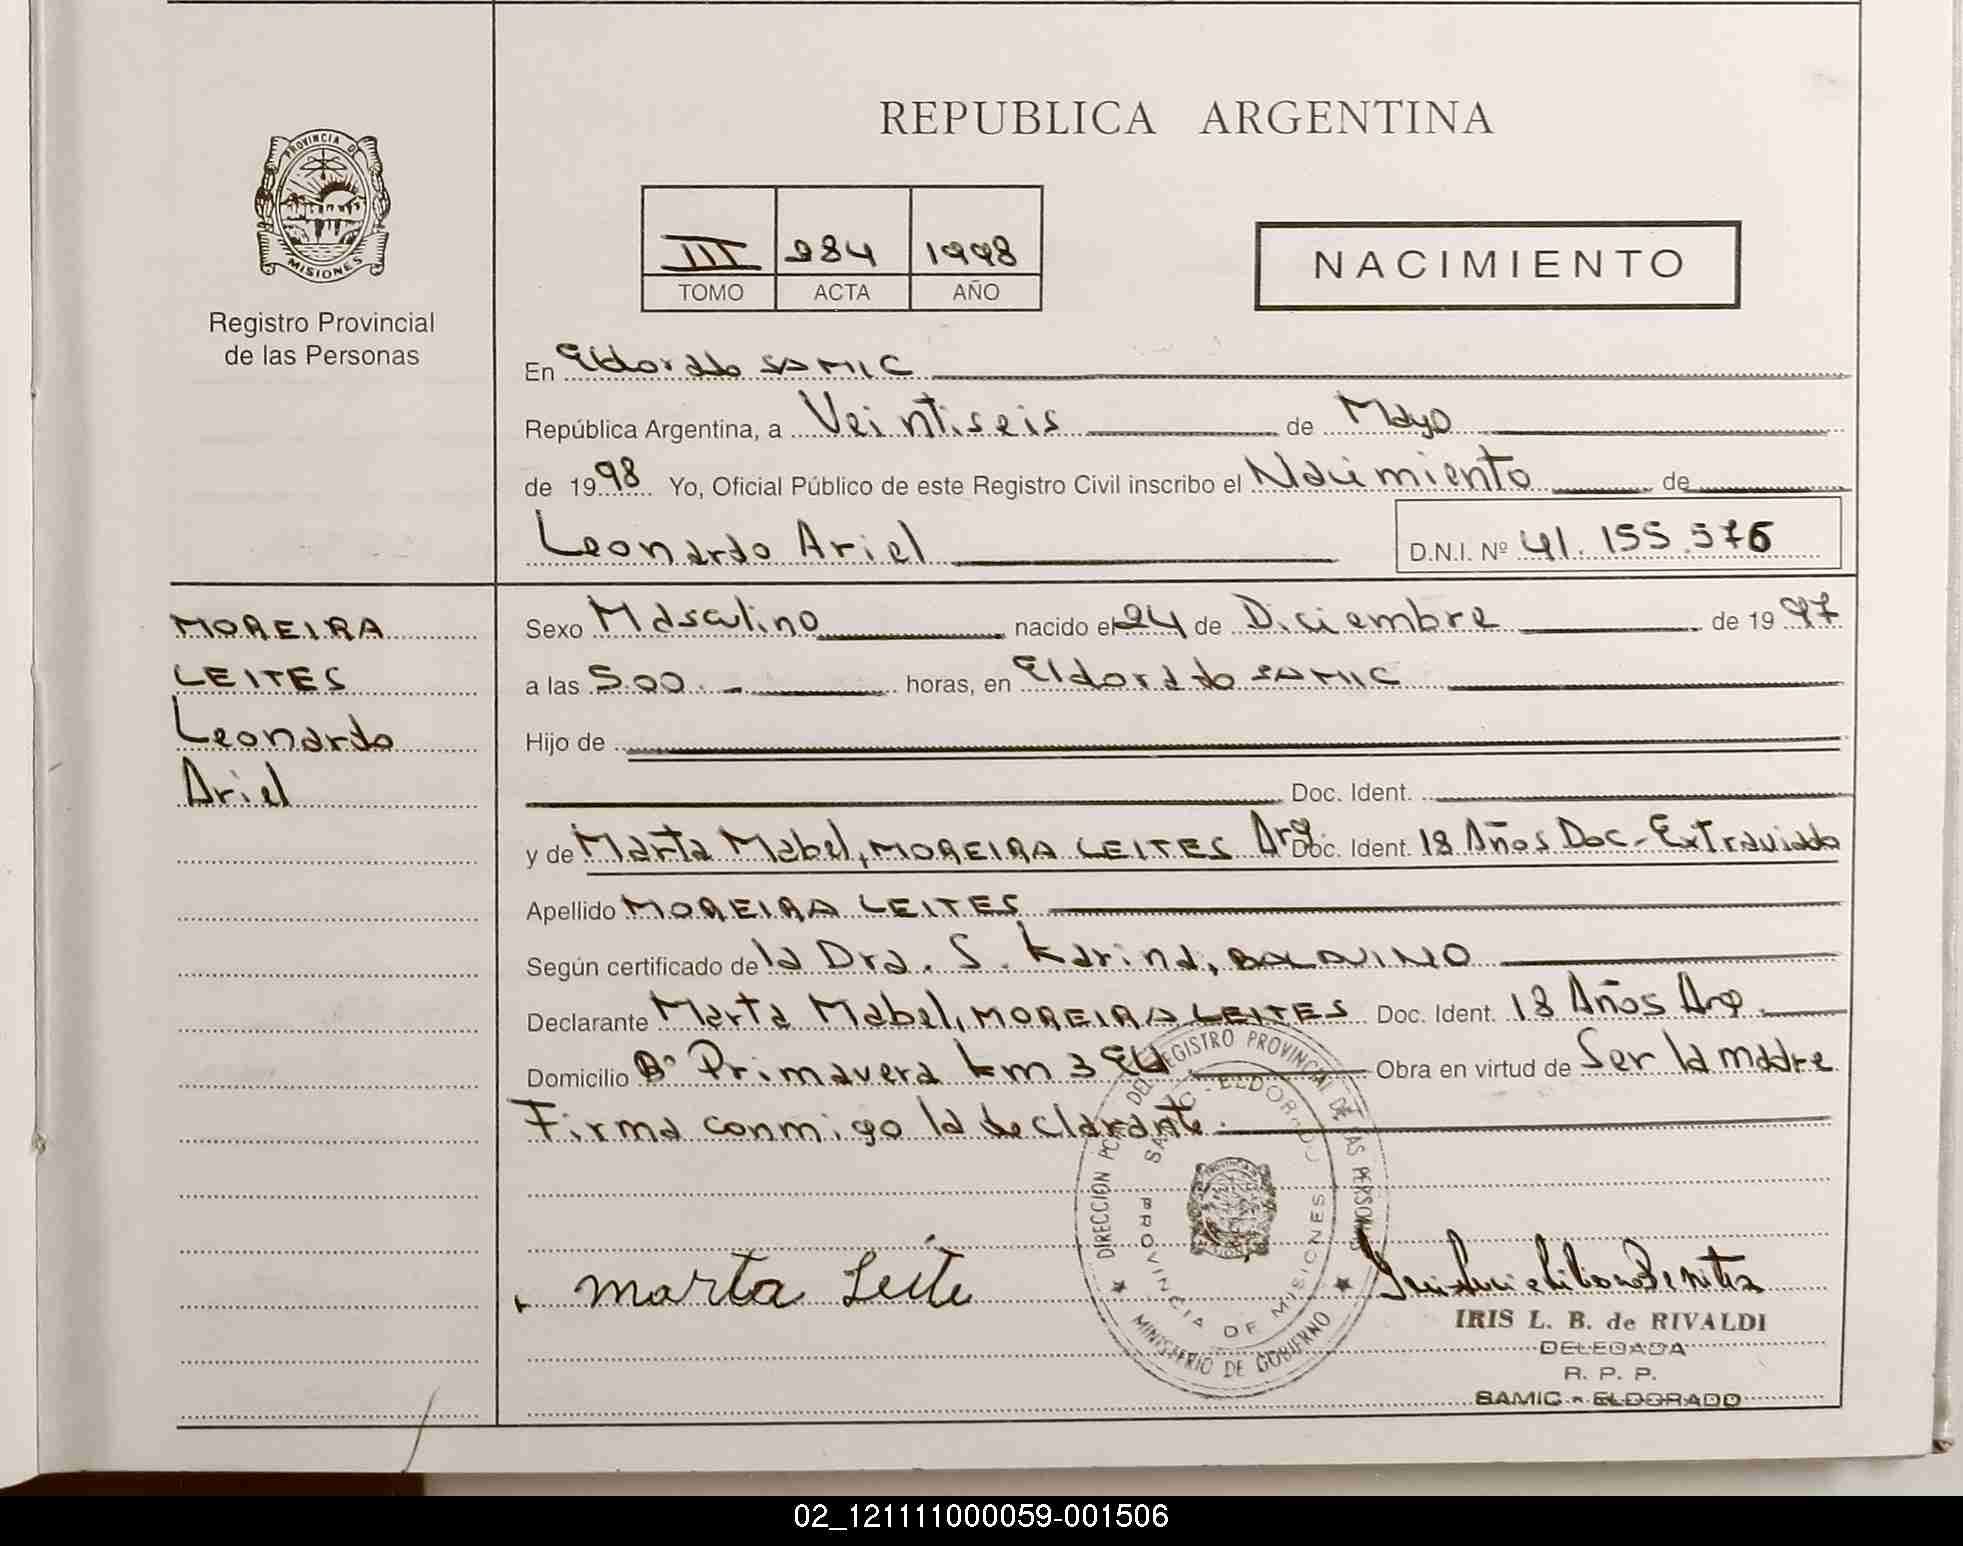 REPUBLICA ARGENTINA
PROVINCIA DE
MISIONES
Registro Provincial
de las Personas
III 284 1998
TOMO ACTA AÑO
NACIMIENTO
En Eldorado SAMIC
República Argentina, a Veintiseis de Mayo
de 1998 Yo, Oficial Público de este Registro Civil inscribo el Nacimiento de
Leonardo Ariel D.N.I. Nº 41.155.576
MOREIRA
LEITES
Leonardo
Ariel
Sexo Masculino nacido el 24 de Diciembre de 1997
a las 5.00.- horas, en Eldorado SAMIC
Hijo de
Doc. Ident.
y de Marta Mabel, MOREIRA LEITES Arg. Doc. Ident. 18 Años Doc-Extraviado
Apellido MOREIRA LEITES
Según certificado de la Dra. S. Karina,
Declarante Marta Mabel, MOREIRA LEITES Doc. Ident. 18 Años Arg.
Domicilio Bº Primavera km 3 Obra en virtud de Ser la madre
Firma conmigo la declarante.
DEL REGISTRO PROVINCIAL DE LAS PERSONAS
MINISTERIO DE GOBIERNO
SAMIC - ELDORADO
PROVINCIA DE MISIONES
marta Leite
IRIS L. B. de RIVALDI
DELEGADA
R. P. P.
SAMIC - ELDORADO
02_121111000059-001506